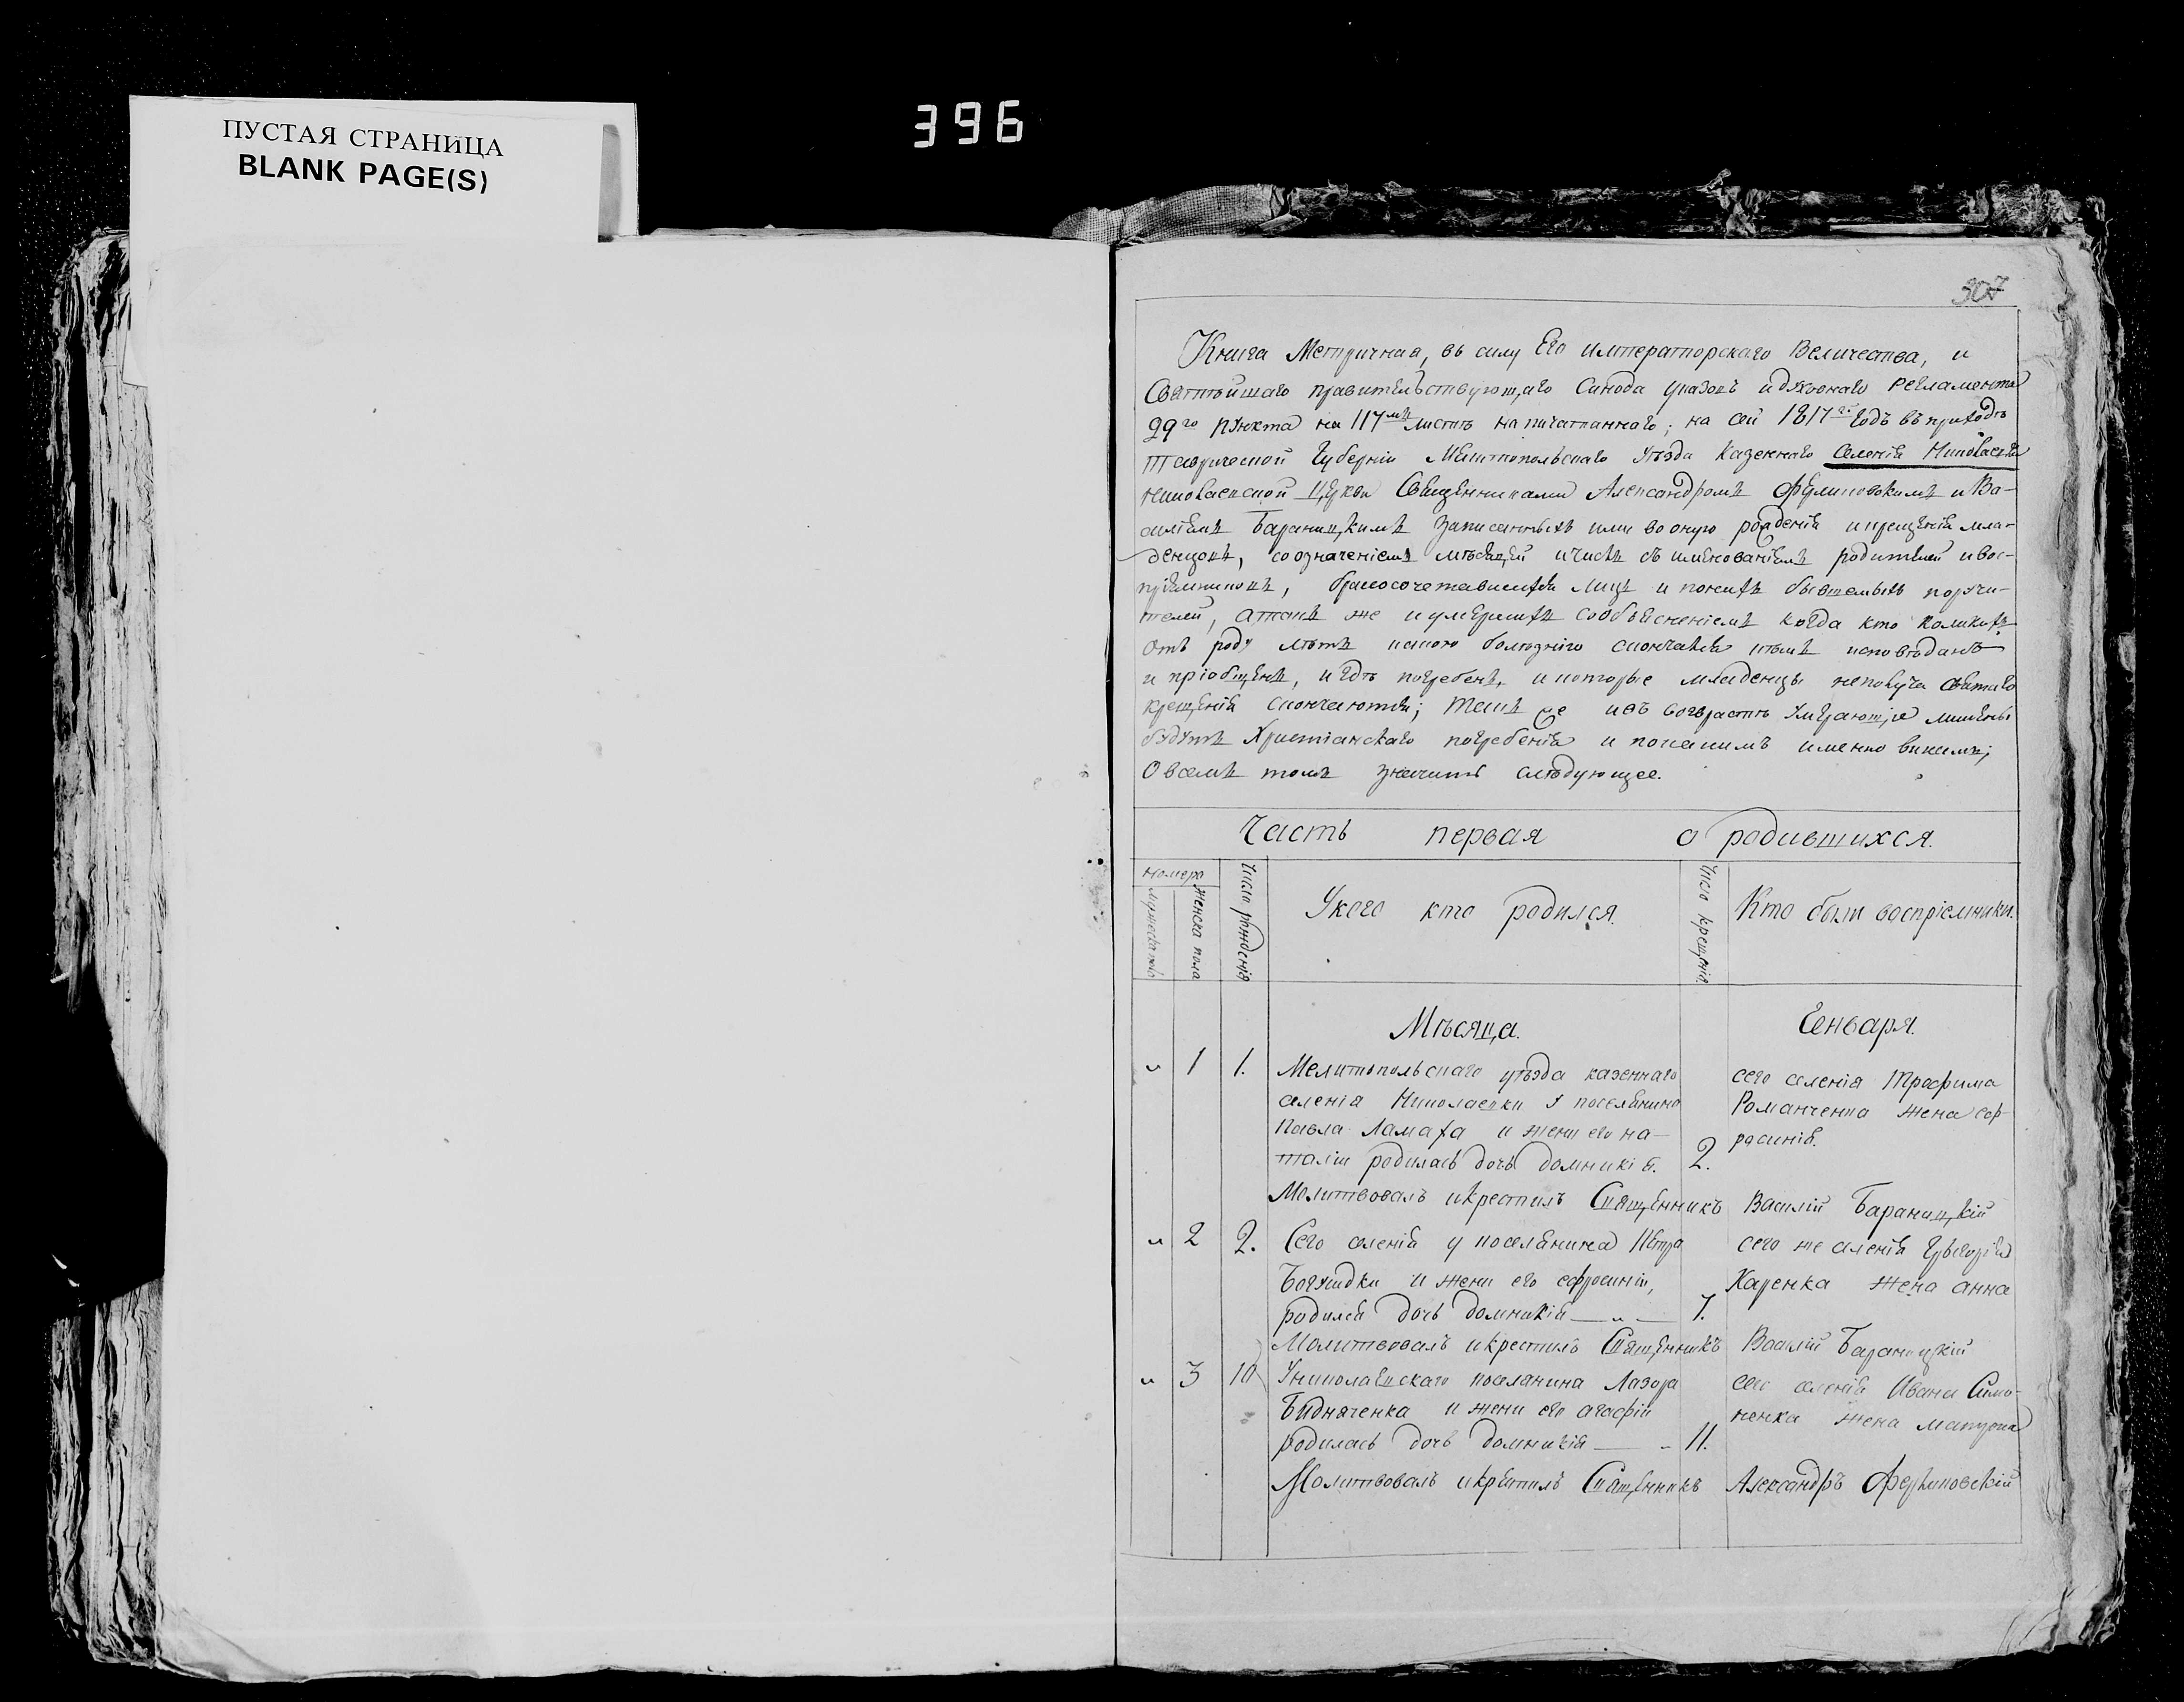 ПУСТАЯ СТРАНИЦА
BLANK PAGE(S)
396
307
Книга Метричная, въ силу Его императорскаго Величества, и
Святѣйшаго правительствующаго Синода указовъ и духовнаго Регламента
29го пункта на 117мъ листѣ напичатаннаго; на сей 1817й годъ въ приходѣ
Таврической Губерніи Мелитопольскаго уѣзда Казеннаго Селенія Николаевки
николаевской Церкви Священниками Александромъ и Ва-
силіемъ Бараницкимъ записанныхъ или во оную рожденія и крещенія мла-
денцовъ, со означеніемъ мѣсяцей и числъ съ именованіемъ родителей и вос-
пріемниковъ, бракосочетавшихся лицъ и по нихъ бывшемыхъ поручи-
телей, а такъ же и умершихъ со объясненіемъ когда кто коликихъ
отъ роду лѣтъ и какою болѣзнію скончался и кѣмъ исповѣданъ
и пріобщенъ, и гдѣ погребенъ, и которые младенцы не получа святаго
крещенія скончаются; такъ же и въ возрастѣ умирающіе лишены
будутъ Христіанскаго погребенія и по какимъ именно винамъ;
О всемъ томъ значитъ слѣдующее.
Часть первая о родившихся.
номера
мужеска пола
женска пола
Число рожденія
У кого кто родился.
Число крещенія.
Кто были воспріемники.
Мѣсяца.
Генваря.
" 1 1. Мелитопольскаго уѣзда казеннаго
селенія Николаевки у поселянина
Павла Ламаха и жени его на-
таліи родилась дочь домникія. 2.
сего селенія Трофима
Романченка жена еф-
росинія.
Молитвовалъ и крестилъ Священникъ Василій Бараницкій
" 2 2. Сего селенія у поселянина Петра
Богушдки и жени его ефросиніи,
родился дочь домникія — " — 7.
сего же селенія Григорія
Харенка жена анна
Молитвовалъ и крестилъ Священникъ Василій Бараницкій
" 3 10 У николаевскаго поселянина Лазора
Бидняченка и жени его агафіи
родилась дочь домникія — - 11.
сего селенія Ивана Симо-
ненка жена матрона
Молитвовалъ и крестилъ Священникъ Александръ